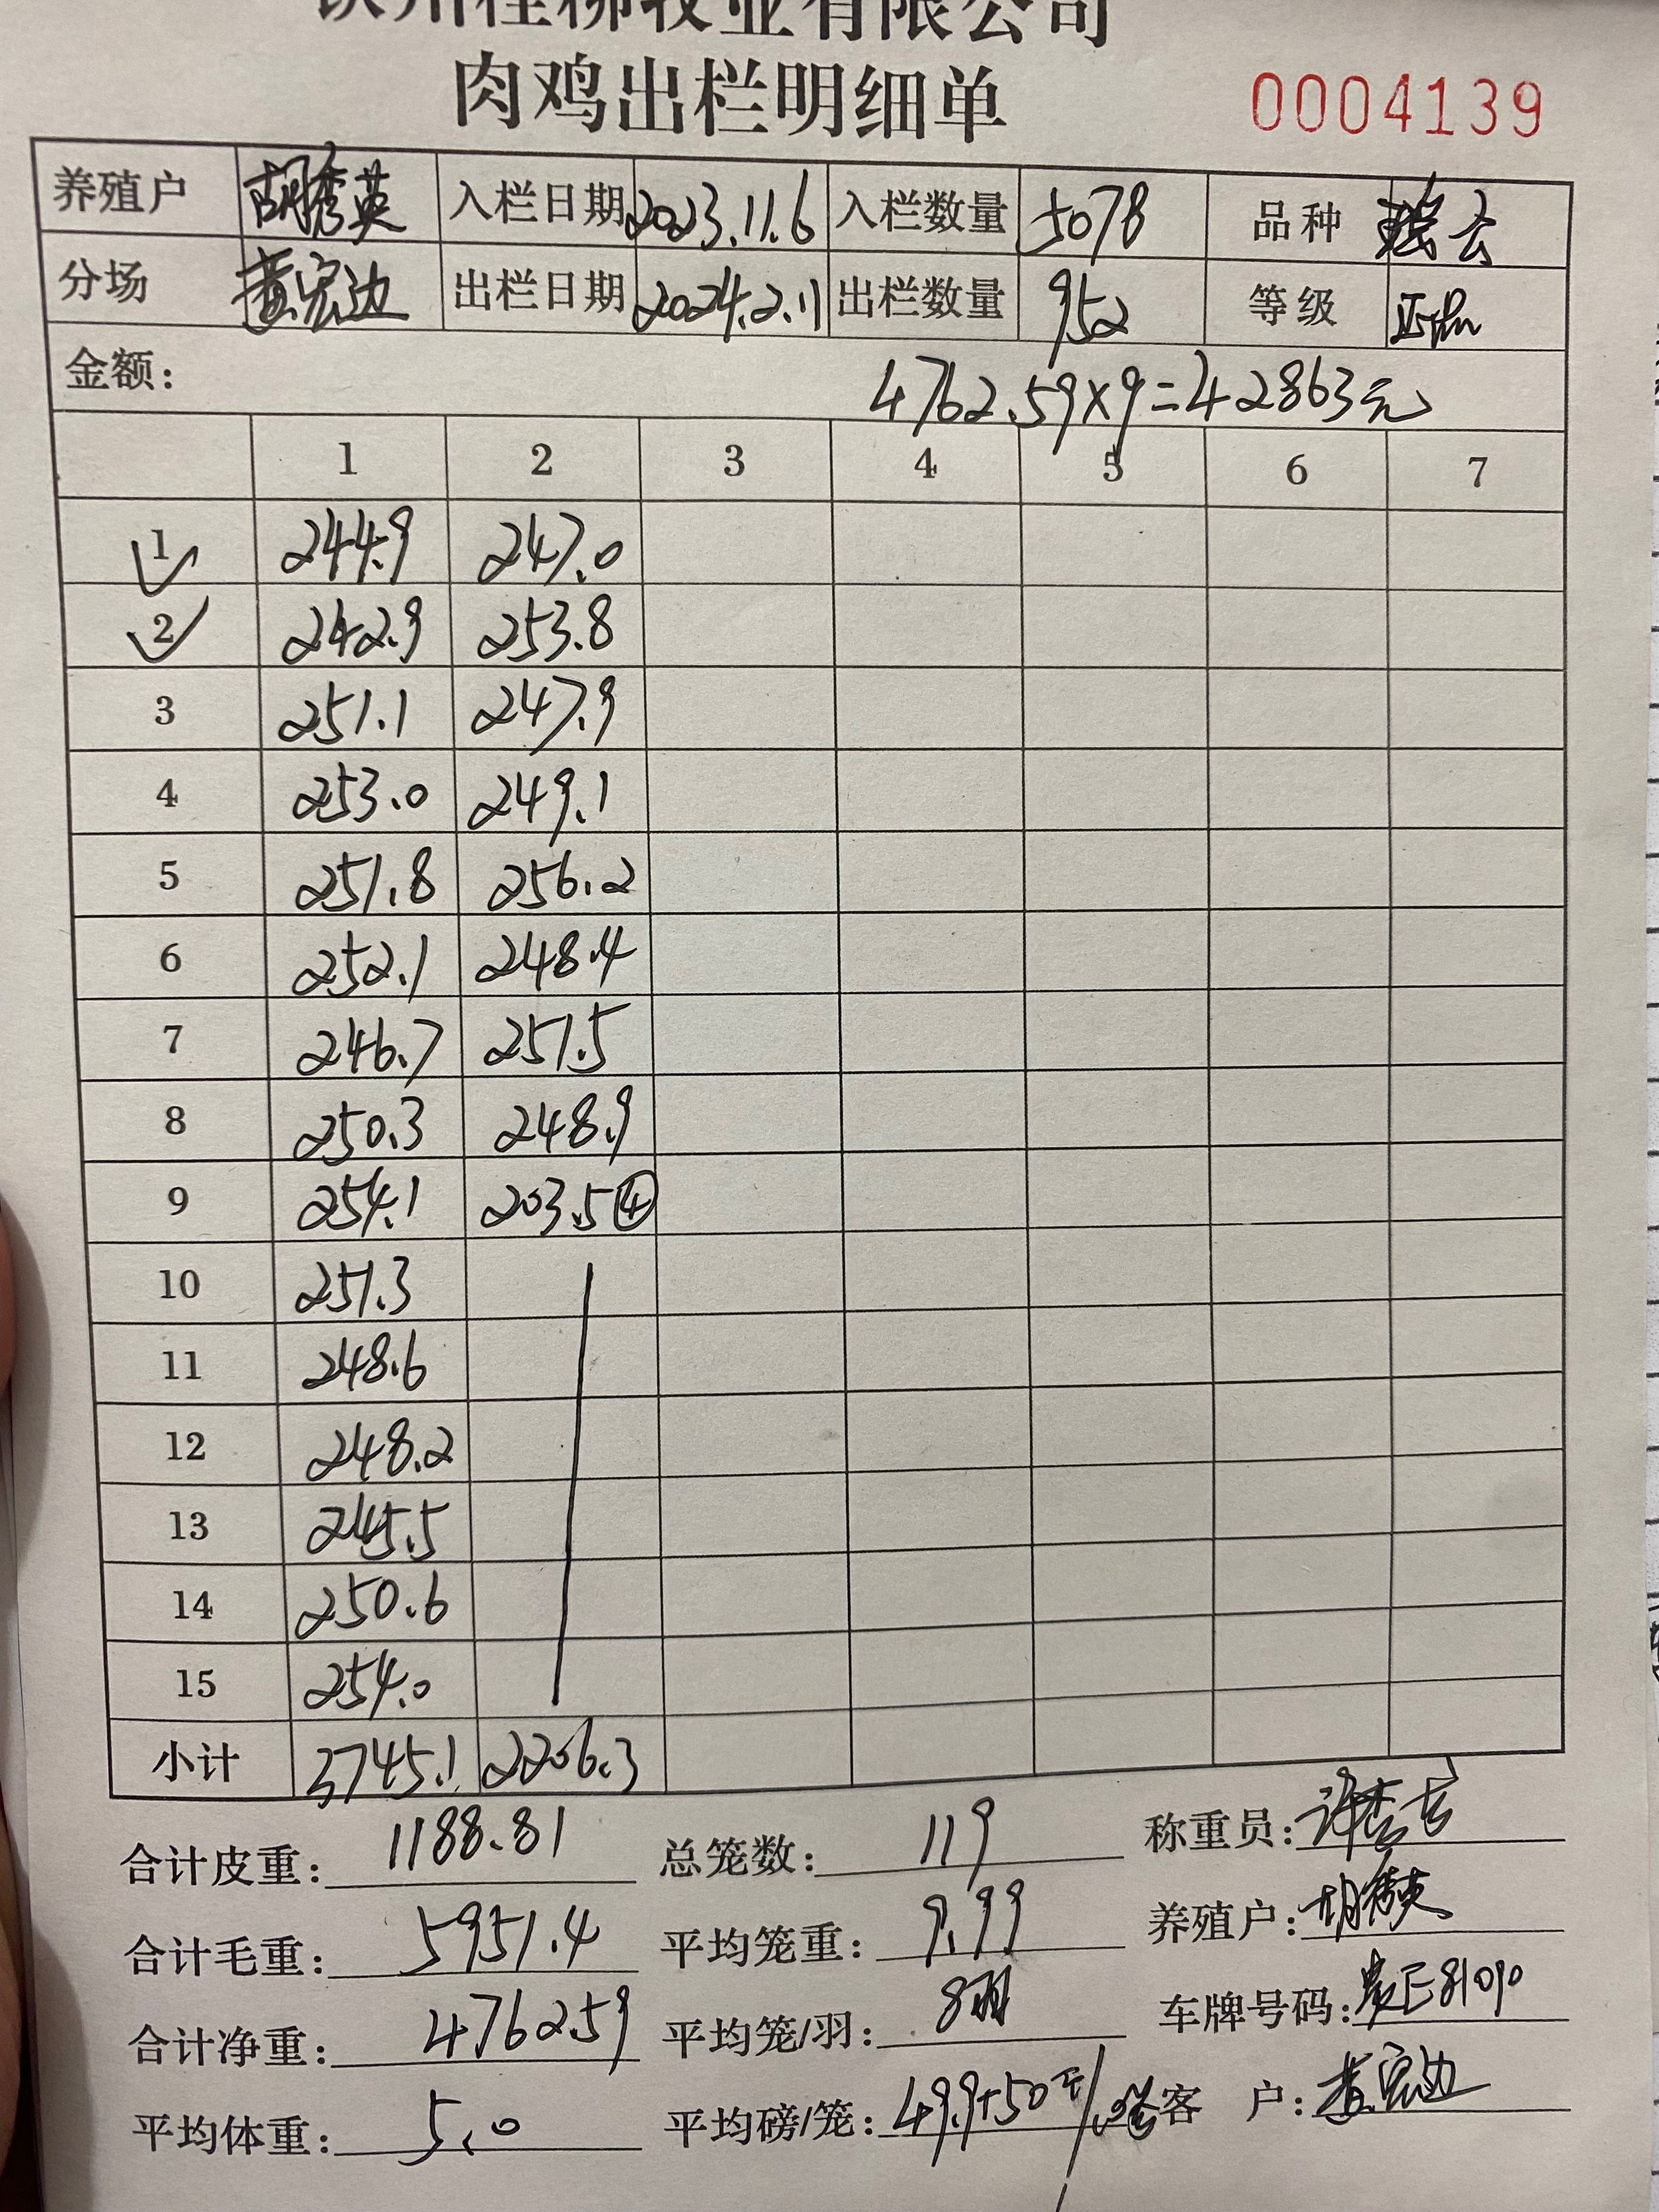 钦州桂柳牧业有限公司
肉鸡出栏明细单 0004139
养殖户 胡秀英 入栏日期 2023.11.6 入栏数量 5078 品种 瑶云
分场 黄宏边 出栏日期 2024.2.11 出栏数量 952 等级
金额: 4762.59×9=42863元
1 2 3 4 5 6 7
1 244.9 247.0
2 242.9 253.8
3 251.1 247.9
4 253.0 249.1
5 251.8 256.2
6 252.1 248.4
7 246.7 251.5
8 250.3 248.9
9 254.1 203.5④
10 251.3
11 248.6
12 248.2
13 245.5
14 250.6
15 254.0
小计 3745.1 2206.3
合计皮重: 1188.81 总笼数: 119 称重员:
合计毛重: 5951.4 平均笼重: 9.99 养殖户: 胡秀英
合计净重: 4762.59 平均笼/羽: 8羽 车牌号码:
平均体重: 5.0 平均磅/笼: 客 户: 黄宏边